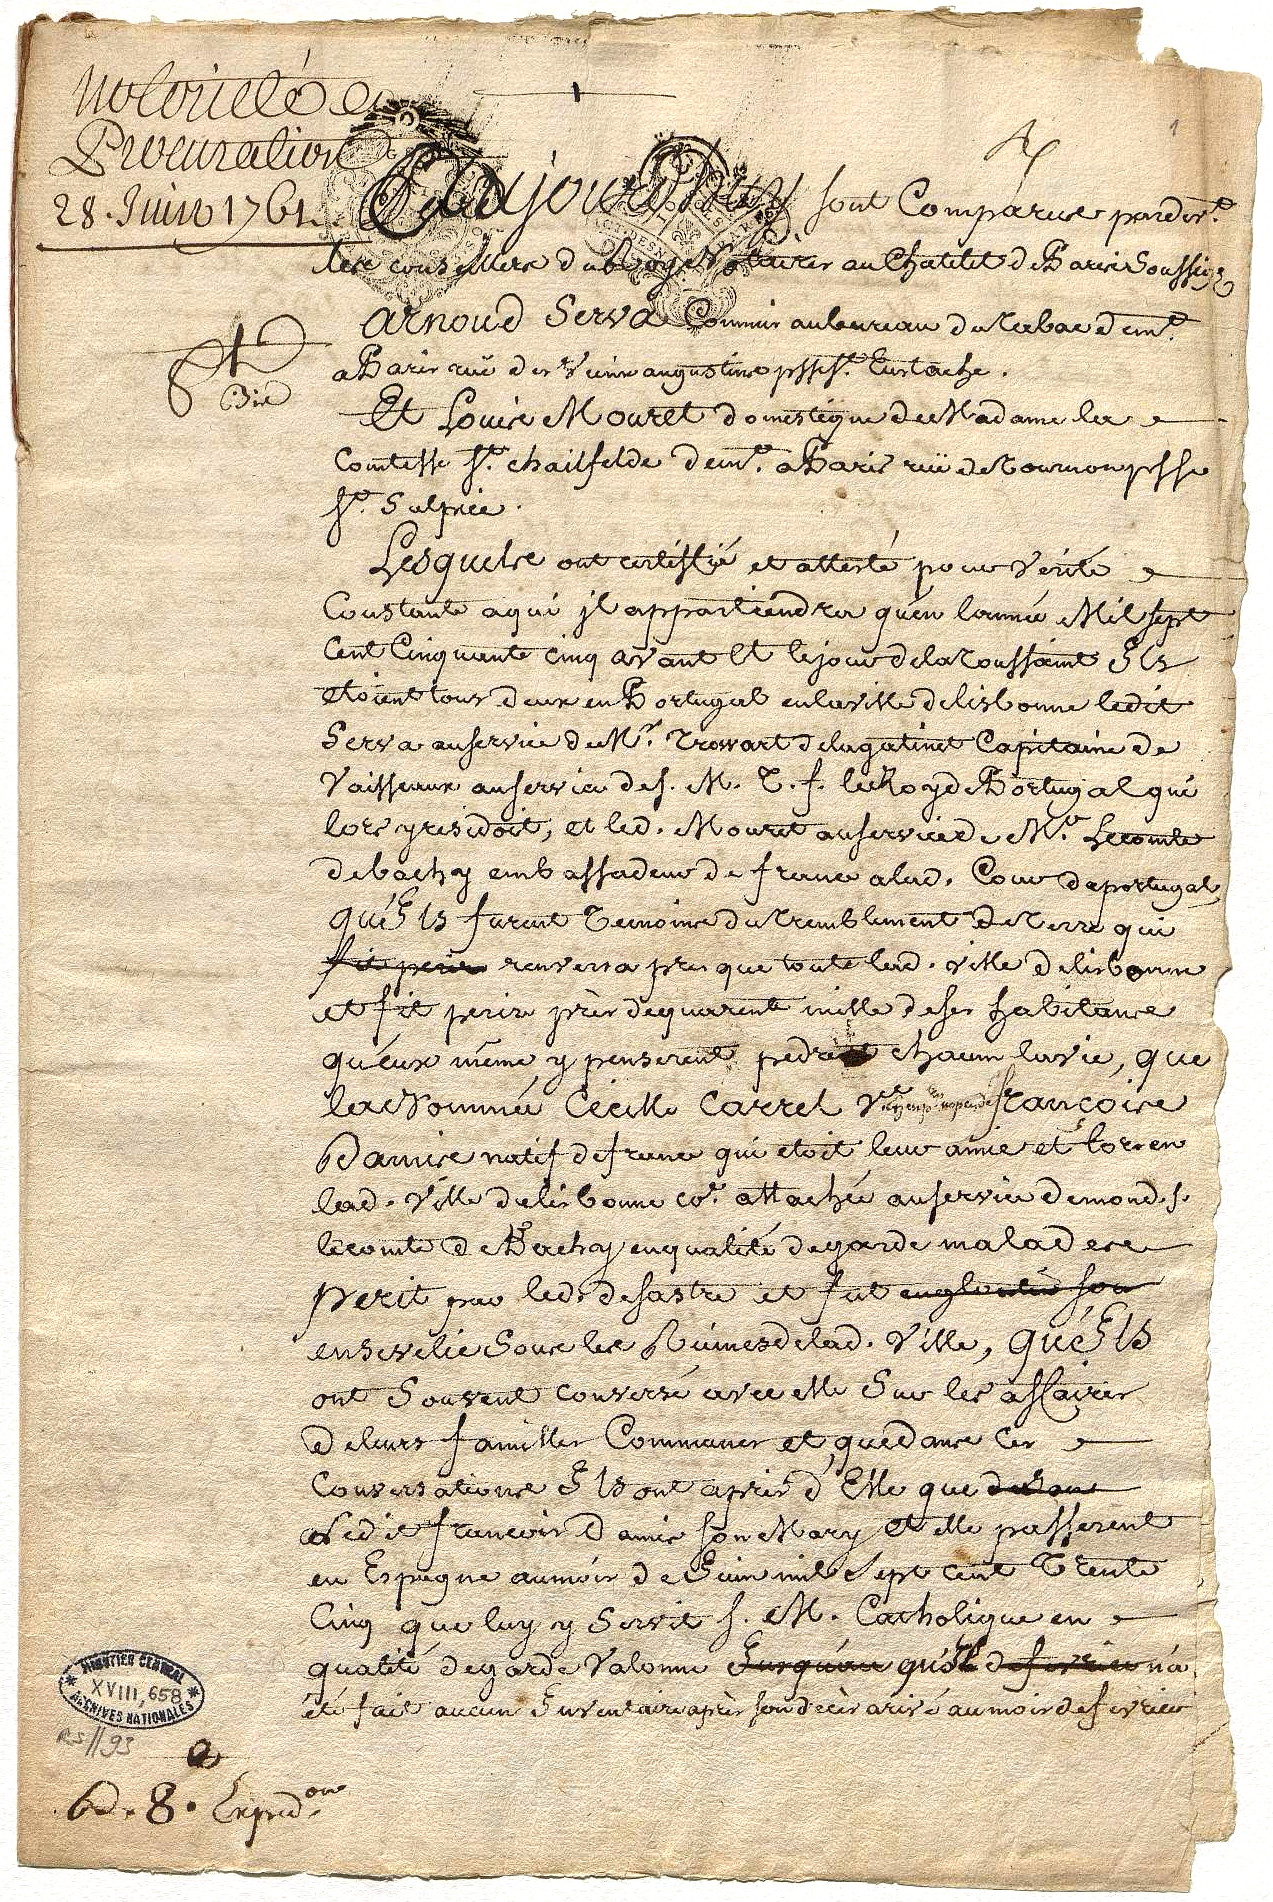 Notorieté &
Procuration
28. Juin 1761.
1
Aujourdhuy sont Comparus pardt.
les conseillers du Roy Notaires au Chatelet de Paris Soussignez
Arnoud Serva Commis au bureau du Tabac demt.
a Paris ruë des Vieux augustins psse St. Eustache.
Et Louis Mouret domestique de Madame la
Comtesse St. chailfelde demt. a Paris ruë de Tournon psse
St. Sulpice.
Lesquels ont certiffié et attesté pour Verité
Constante a qui jl appartiendra qu'en lannée Mil sept
Cent Cinquante cinq avant et le jour de la Toussaint Ils
etoient tous deux en Portugal en la ville de lisbonne ledit
Serva au service de Mr. Trovart de la gatinet Capitaine de
Vaisseaux au service de S. M. T. f. le Roy de Portugal qui
lors y residoit, et led. Mouret au service de Mr. Le comte
de bachy embassadeur de france a lad. Cour de portugal,
qué Ils furent Temoins du Tremblement de Terre qui
fit perir renversa presque toute lad. ville de lisbonne
et fit perir près de quarente mille de ses habitans
qu'eux même y penserent pedre chacun la vie, que
la Nommée Cecille Carrel Ve. françois
Damis natif de france qui etoit leur amie et lors en
lad. Ville de lisbonne attachée au service de mond. S.
le comte de Bachy en qualité de garde malades
Perit par led. desastre et fut engloutie sou
ensevelie Sous les Ruines de lad. Ville, qué Ils
ont Souvent conversé avec elle Sur les affaires
de leurs familles Communes et que dans ces
Conversations Ils ont apris d'Elle que
ledit françois damis son Mary et elle passerent
en Espagne au mois de Juin mil Sept cent Trente
Cinq que luy y Servit S. M. Catholique en
qualité de garde Valonne Jusqu'au qu'Il de fevrier n'a
été fait aucun Inventaire après son decès arivé au mois de fevrier
MINUTIER CENTRAL
XVIII, 658
ARCHIVES NATIONALES
RS//93
D. 8. Expedon.